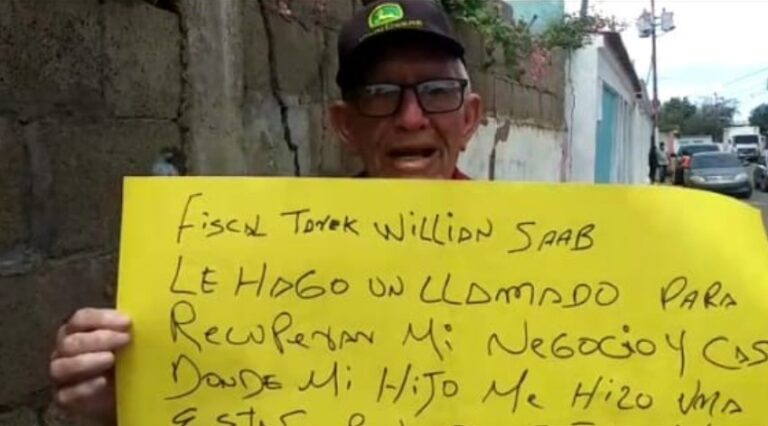 FISCAL TAREK WILLIAN SAAB
LE HAGO UN LLAMADO PARA
RECUPERAR MI NEGOCIO Y CAS
DONDE MI HIJO ME HIZO UNA